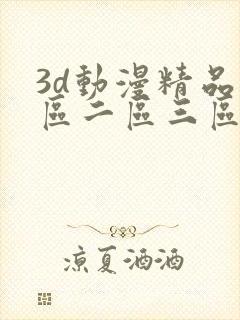 3d動漫精品
區二區三區
涼夏酒酒